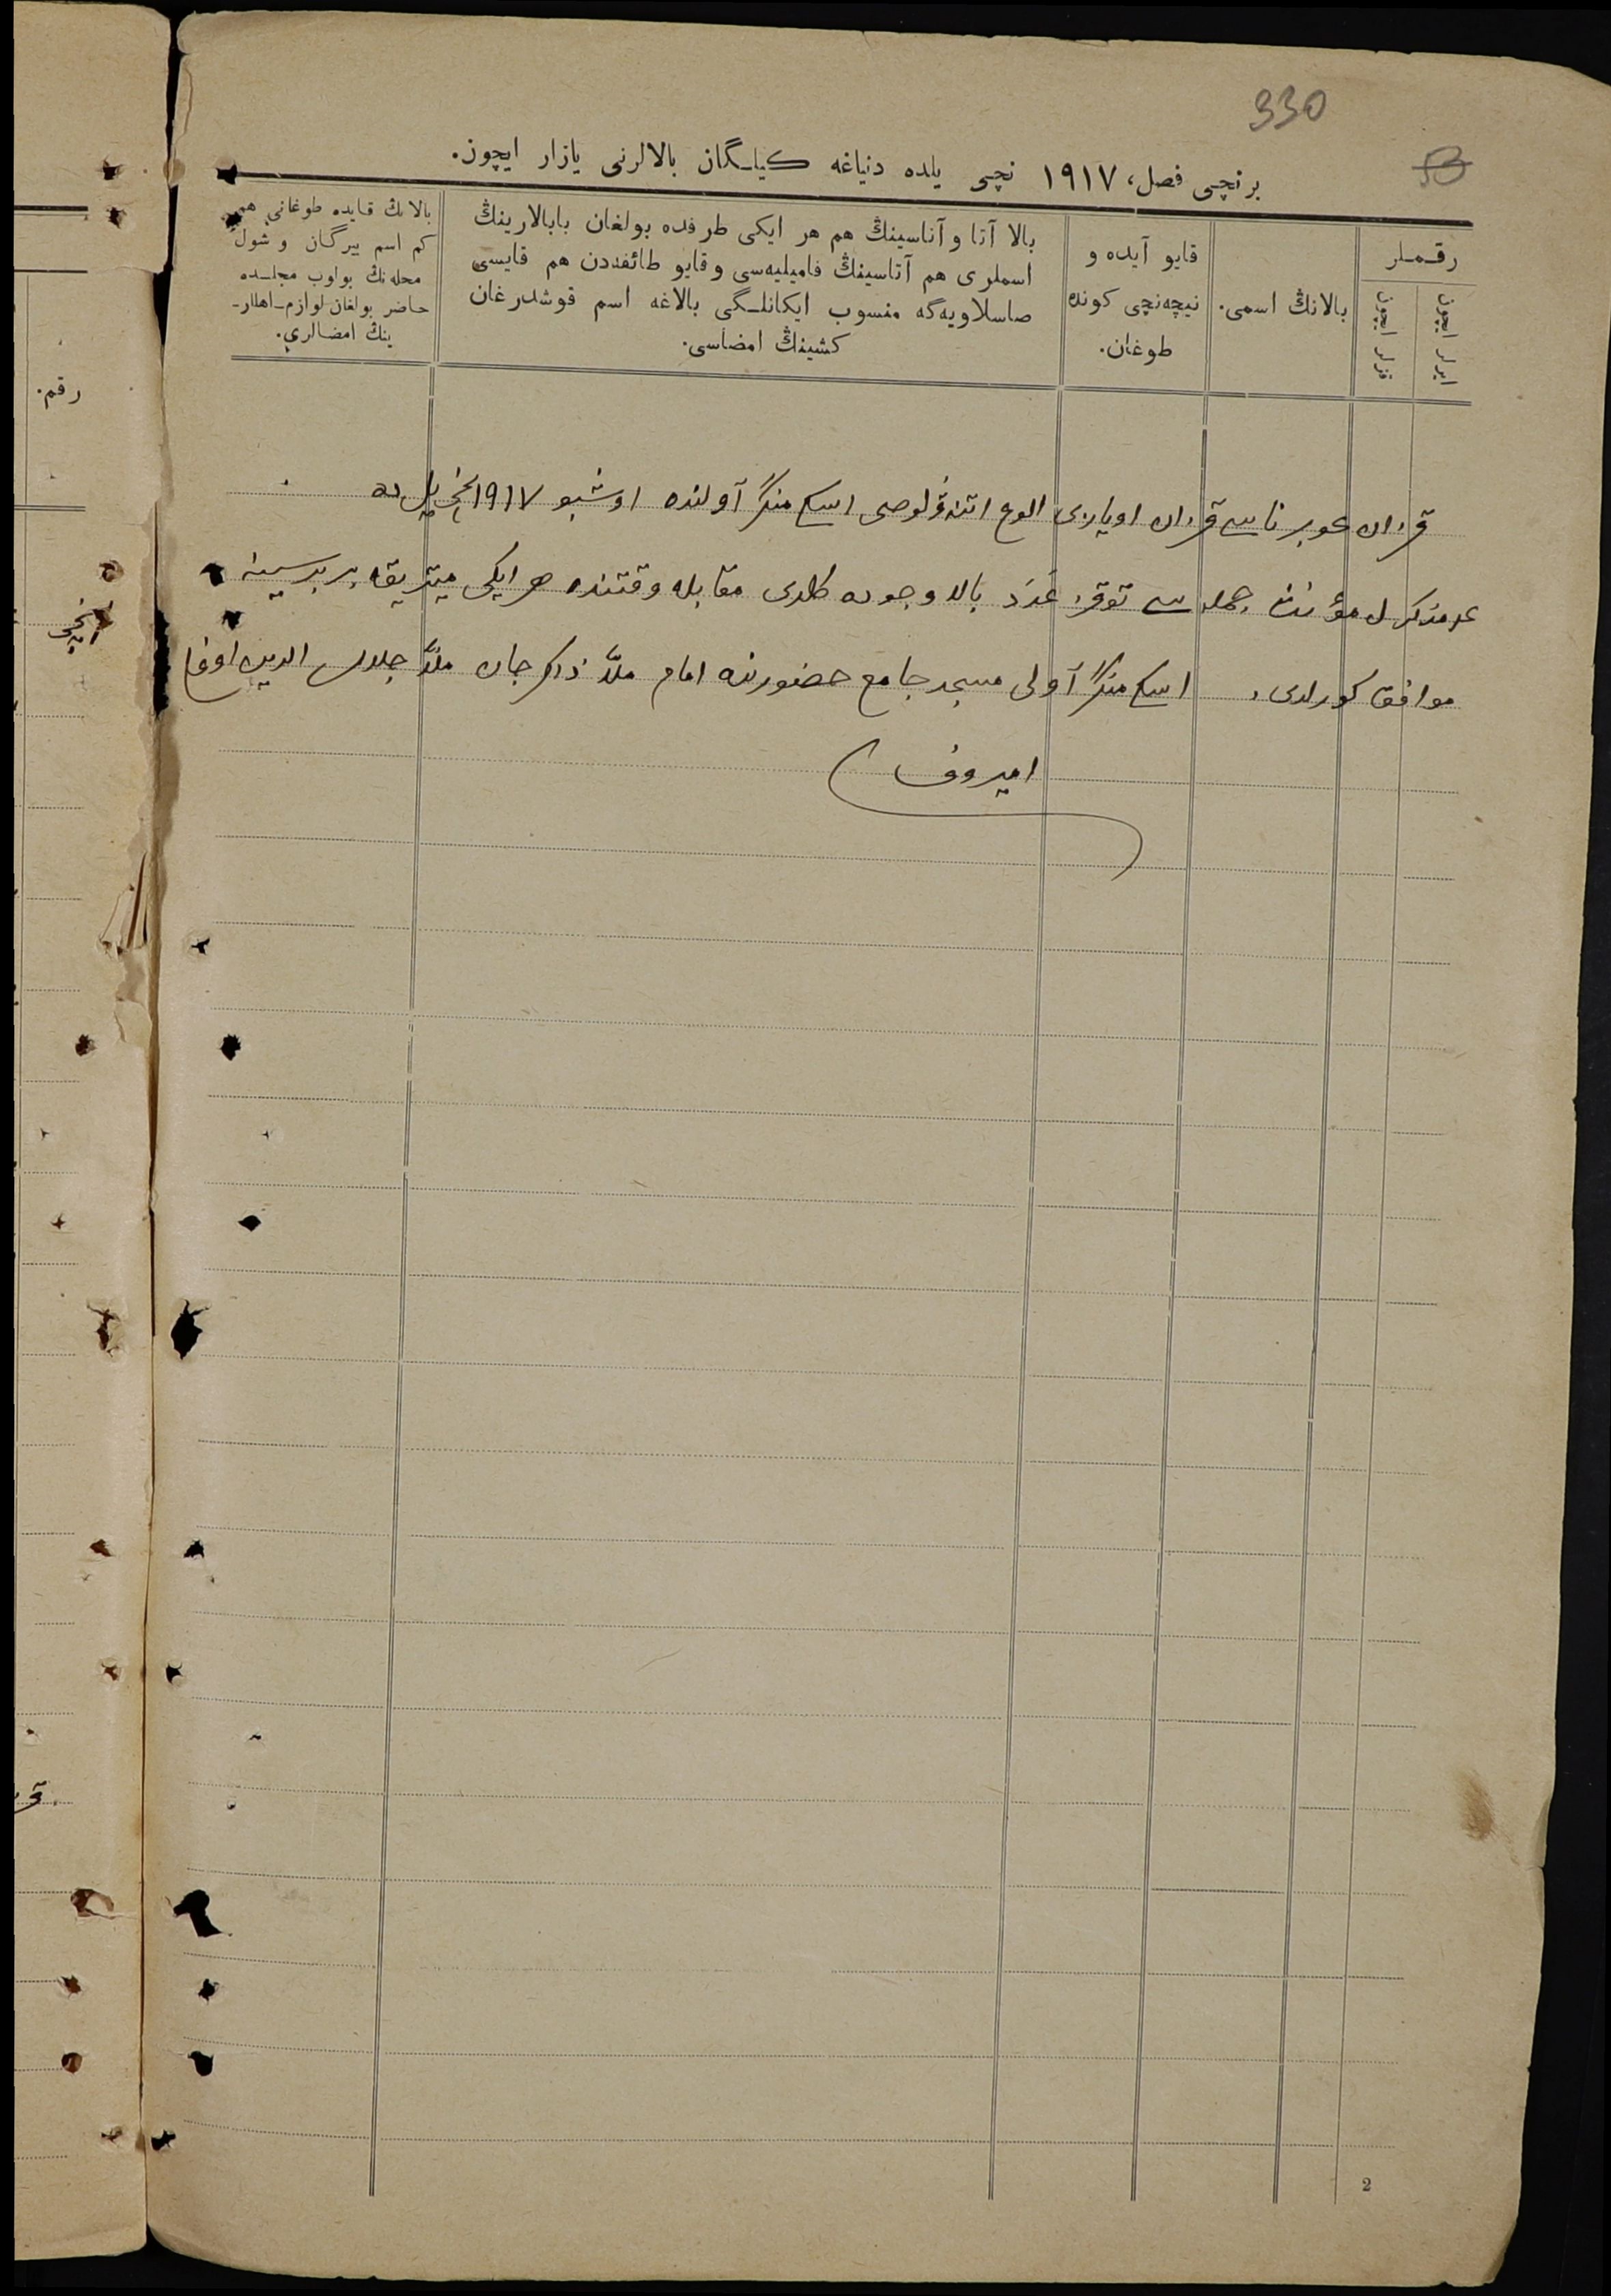 330
53
برنچی فصل، ١٩١٧ نچی یلده دنیاغه کیلـگان بالالرنی یازار ایچون.
رقـمـلر
ایرلر ایچون
قزلر ایچون
بالانڭ اسمی.
قایو آیده و
نیچه‌نچی کونده
طوغان.
بالا آتا و آناسینڭ هم هر ایکی طرفده بولغان بابالارینڭ
اسملری هم آتاسینڭ فامیلیه‌سی و قایو طائفه‌دن هم قایسی
صاسلاویه‌گه منسوب ایکانلـگی بالاغه اسم قوشدرغان
کشینڭ امضاسی.
بالانڭ قایده طوغانی هم
کم اسم بیرگان و شول
محله‌نڭ بولوب مجلـسده
حاضر بولغان لوازم-اهللر-
ینڭ امضالری.
قزان غوبرناسی قزان اویازی الوغ اتنه ولوصی اسکی منگر آولنده اوشبو ١٩١٧نچی یل ده
مذکر مؤنث جمله سی توقز عَدَد بالا وجوده کلدی مقابله وقتنده هر ایکی میتریقه بر برسینه
موافق کورلدی. اسکی منگر آولی مسجد جامع حضورنده امام ملّا ذاکرجان ملّا جلال الدین اوغلی
امیروف
رقم.
نچی
2